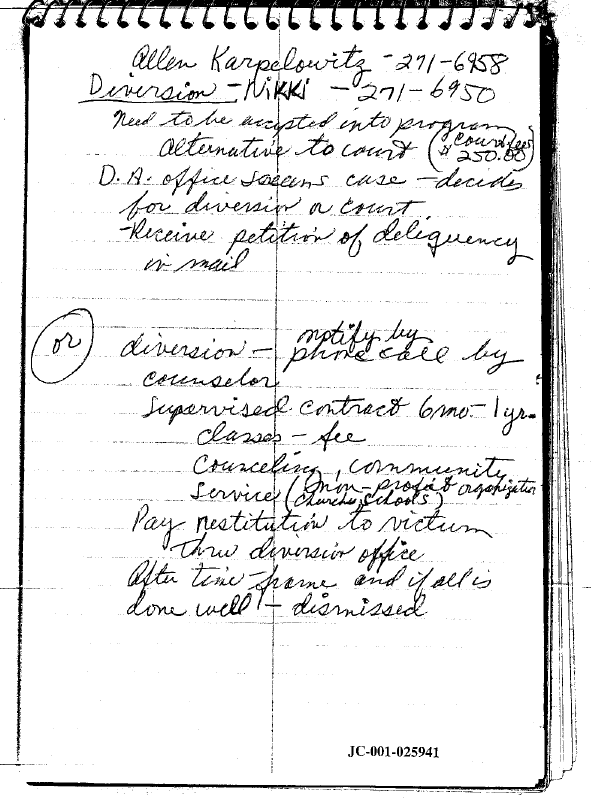 Allen Karpelowitz - 271-6958
Diversion - Nikki - 271-6950
Need to be accepted into program
alternative to court ( Court fees
$ 250.00 )
D. A. office screens case - decides
for diversion or court.
- Receive petition of deliquency
in mail
or
diversion - notify by
phone call by
counselor
Supervised contract 6 mo - 1 yr.
classes - fee
Counceling, community
Service ( non-profit organization
churches, schools )
Pay restitution to victum
thru diversion office
After time-frame and if all is
done well - dismissed
JC-001-025941